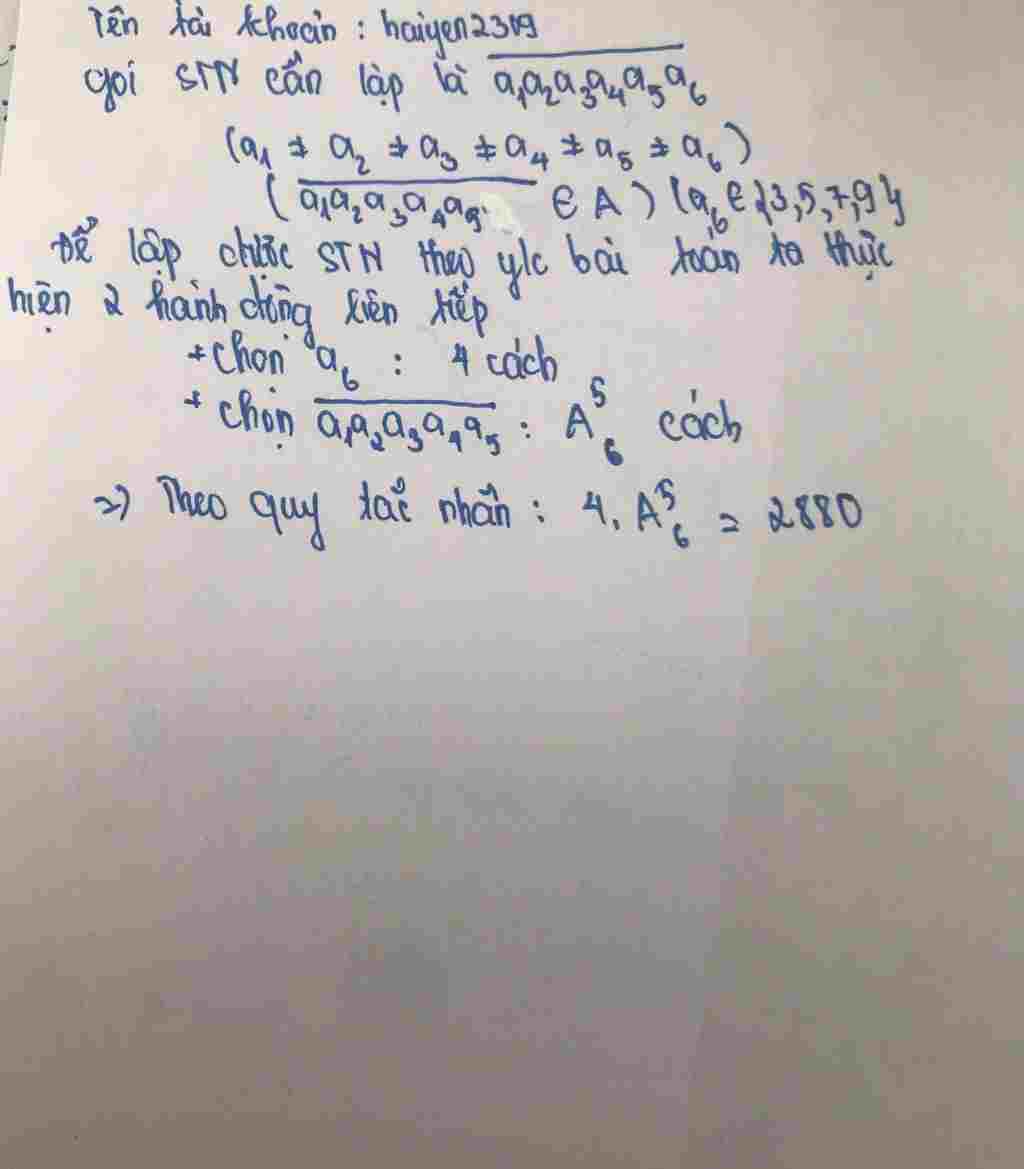 Tên tài khoản : haiyen2319
gọi STN cần lập là a₁a₂a₃a₄a₅a₆
(a₁ ≠ a₂ ≠ a₃ ≠ a₄ ≠ a₅ ≠ a₆)
(a₁a₂a₃a₄a₅ ∈ A) (a₆ ∈ {3,5,7,9}
Để lập được STN theo y/c bài toán ta thực
hiện 2 hành động liên tiếp
+ chọn a₆ : 4 cách
+ chọn a₁a₂a₃a₄a₅ : A⁵₆ cách
=) Theo quy tắc nhân : 4. A⁵₆ = 2880